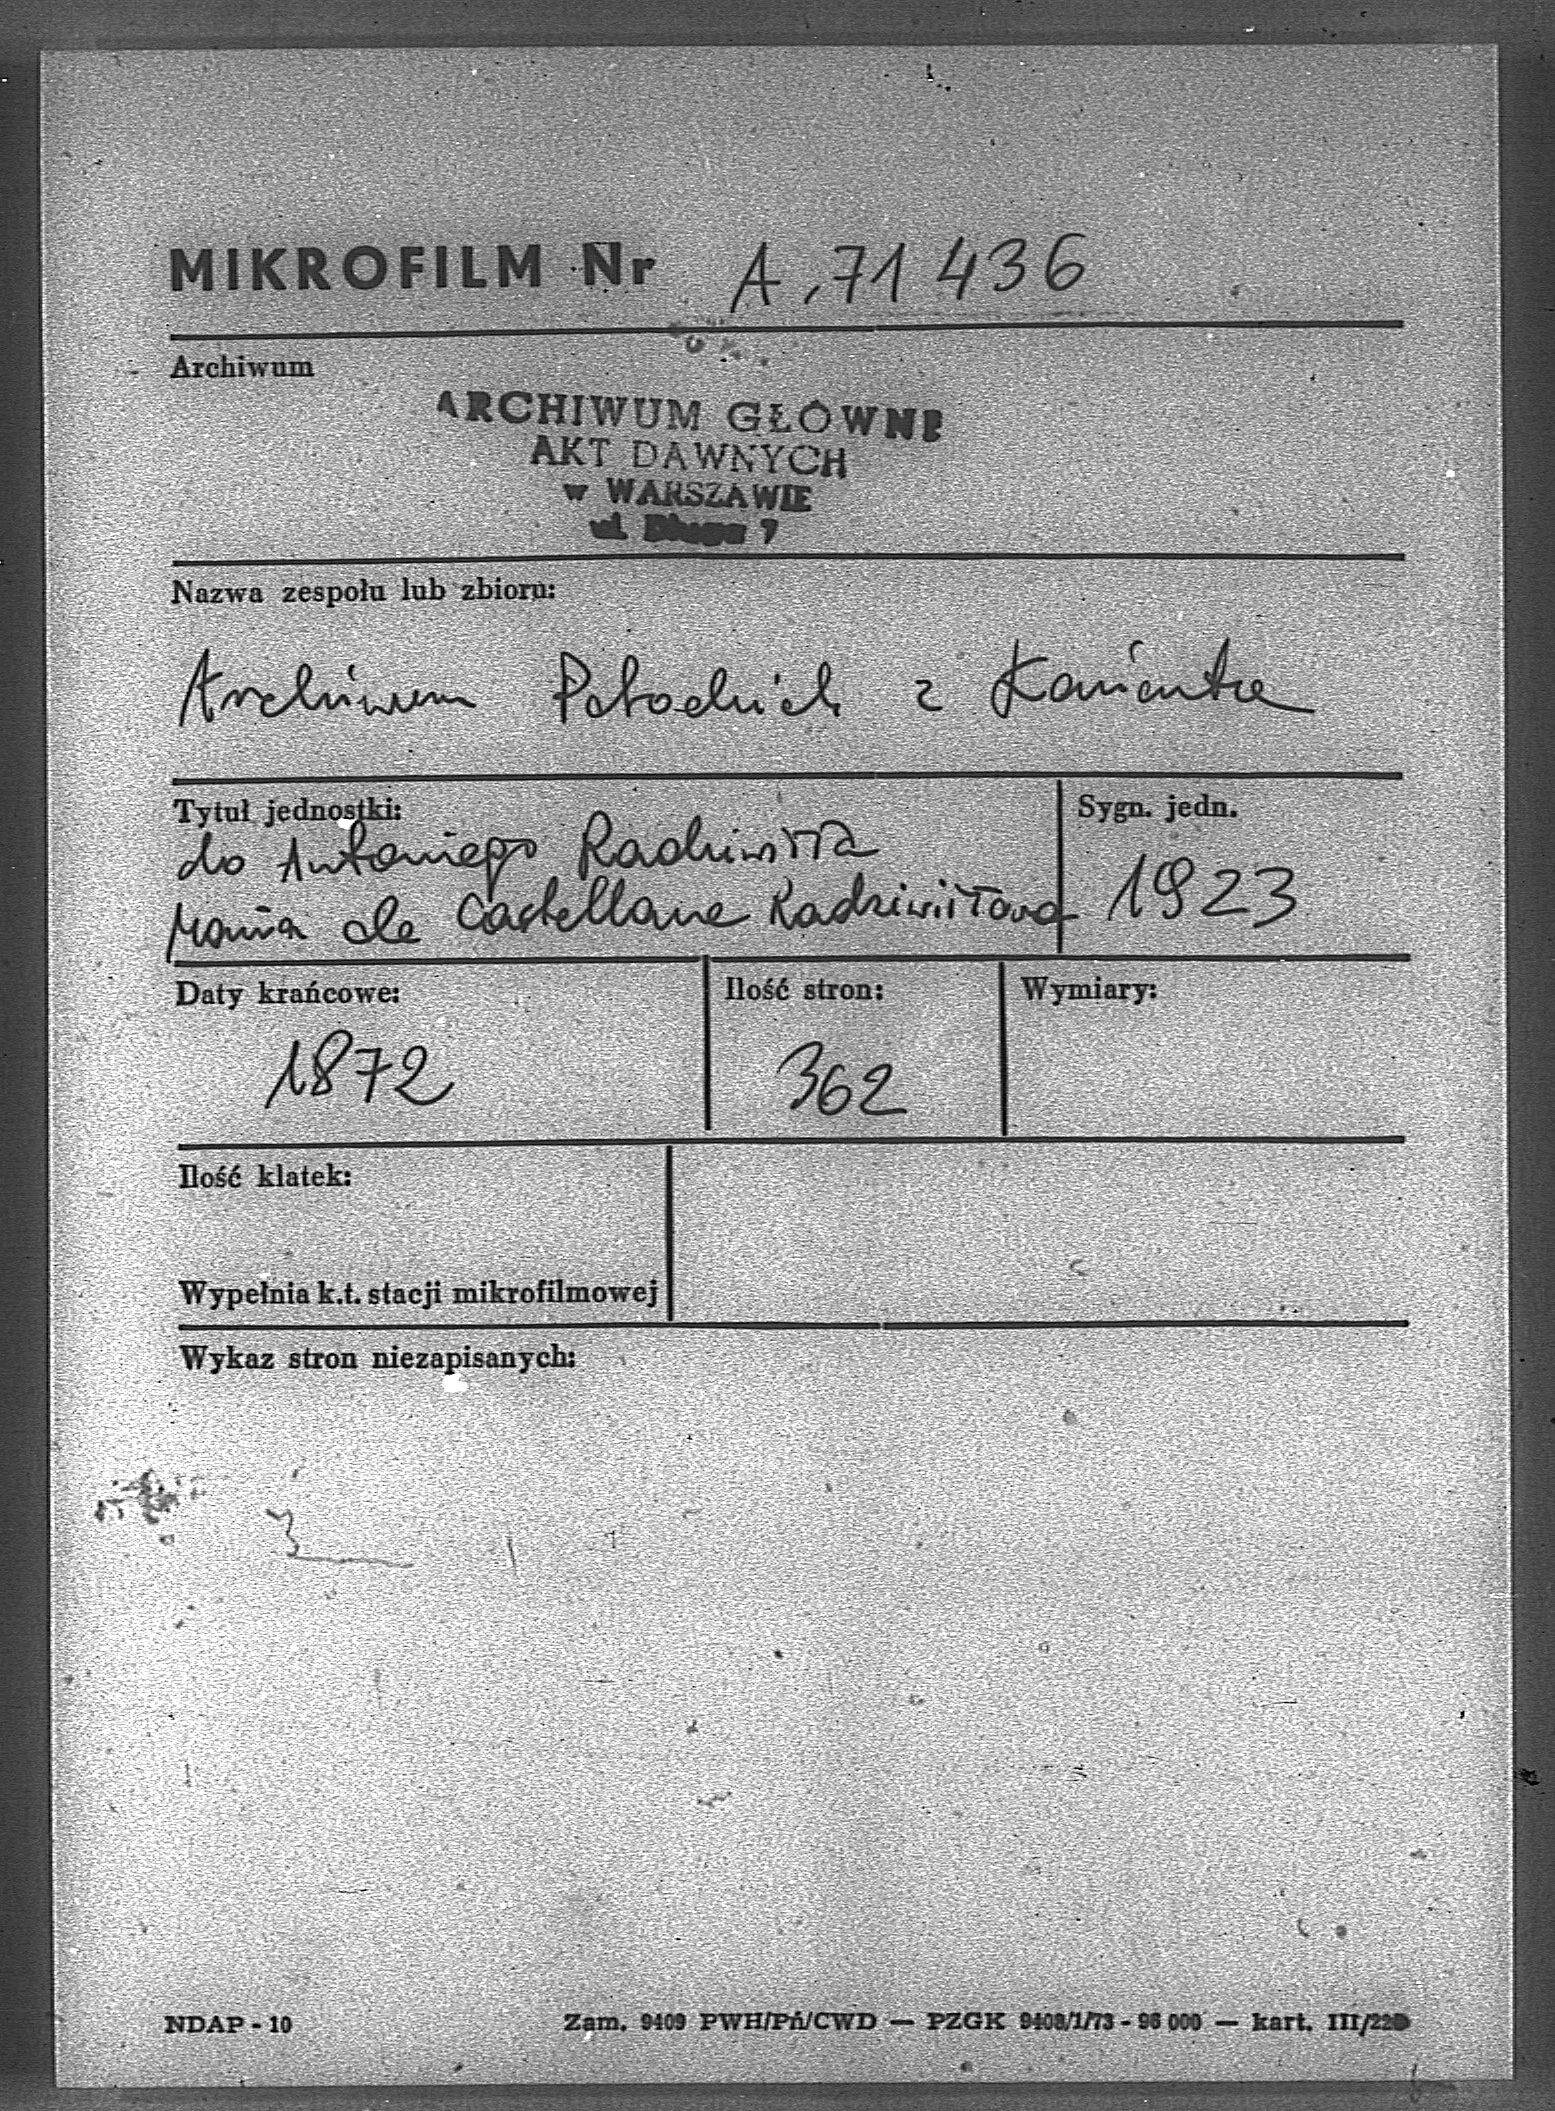 MIKROFILM Nr A.71436
Archiwum
ARCHIWUM GŁÓWNE
AKT DAWNYCH
w WARSZAWIE
ul. Długa 7
Nazwa zespołu lub zbioru:
Archiwum Potockich z Łańcuta
Tytuł jednostki:
Sygn. jedn.
do Antoniego Radziwiłła
Maria de Castellane Radziwiłłowa
1923
Daty krańcowe:
Ilość stron:
Wymiary:
1872
362
Ilość klatek:
Wypełnia k.t. stacji mikrofilmowej
Wykaz stron niezapisanych:
NDAP - 10
Zam. 9409 PWH/Pń/CWD — PZGK 9408/1/73 - 96 000 — kart. III/220